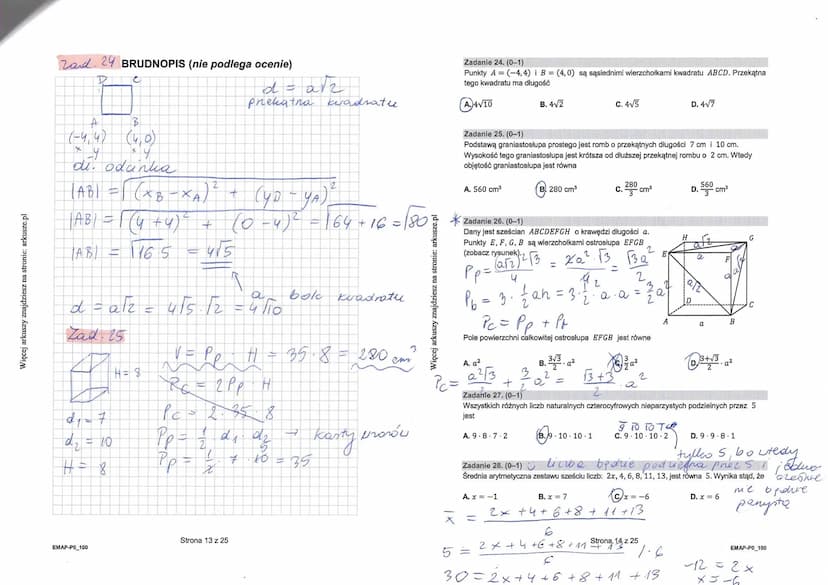 Zad. 24 BRUDNOPIS (nie podlega ocenie)
D C
d = a√2
przekątna kwadratu
A B
(-4,4) (4,0)
x y x y
dł. odcinka
|AB| = √((x_B - x_A)² + (y_B - y_A)²)
|AB| = √((4+4)² + (0-4)²) = √64+16 = √80
|AB| = √16·5 = 4√5
a bok kwadratu
d = a√2 = 4√5·√2 = 4√10
Zad. 25
V = Pp · H = 35·8 = 280 cm³
H = 8
Pc = 2Pp · H
d₁ = 7
Pc = 2·35·8
d₂ = 10
Pp = ½ · d₁ · d₂ →
H = 8
Pp = ½ · 7 · 10 = 35
5
Strona 13 z 25
EMAP-P0_100
Więcej arkuszy znajdziesz na stronie: arkusze.pl
Zadanie 24. (0–1)
Punkty A = (−4, 4) i B = (4, 0) są sąsiednimi wierzchołkami kwadratu ABCD. Przekątna
tego kwadratu ma długość
A. 4√10 B. 4√2 C. 4√5 D. 4√7
Zadanie 25. (0–1)
Podstawą graniastosłupa prostego jest romb o przekątnych długości 7 cm i 10 cm.
Wysokość tego graniastosłupa jest krótsza od dłuższej przekątnej rombu o 2 cm. Wtedy
objętość graniastosłupa jest równa
A. 560 cm³ B. 280 cm³ C. 280/3 cm³ D. 560/3 cm³
* Zadanie 26. (0–1)
Dany jest sześcian ABCDEFGH o krawędzi długości a.
Punkty E, F, G, B są wierzchołkami ostrosłupa EFGB
(zobacz rysunek).
H G
a√2
E F
a a
a√2
D C
A a B
Pp = (a√2)²√3/4 = 2a²·√3/4 = √3a²/2
2
Pb = 3 · ½ah = 3·½·a·a = 3/2a²
Pc = Pp + Pb
Pole powierzchni całkowitej ostrosłupa EFGB jest równe
A. a² B. 3√3/2 · a² C. 3/2 a² D. (3+√3)/2 · a²
Pc = a²√3/2 + 3/2a² = (√3+3)/2 · a²
Zadanie 27. (0–1)
Wszystkich różnych liczb naturalnych czterocyfrowych nieparzystych podzielnych przez 5
jest
9 10 10 1
A. 9 · 8 · 7 · 2 B. 9 · 10 · 10 · 1 C. 9 · 10 · 10 · 2 D. 9 · 9 · 8 · 1
tylko 5, bo wtedy
liczba będzie podzielna przez 5 i jednocześnie
nie będzie
parzysta
Zadanie 28. (0–1)
Średnia arytmetyczna zestawu sześciu liczb: 2x, 4, 6, 8, 11, 13, jest równa 5. Wynika stąd, że
A. x = −1 B. x = 7 C. x = −6 D. x = 6
x̄ = (2x+4+6+8+11+13)/6
5 = (2x+4+6+8+11+13)/6 /·6
30 = 2x+4+6+8+11+13
-12 = 2x
x = -6
Strona 14 z 25
EMAP-P0_100
Więcej arkuszy znajdziesz na stronie: arkusze.pl